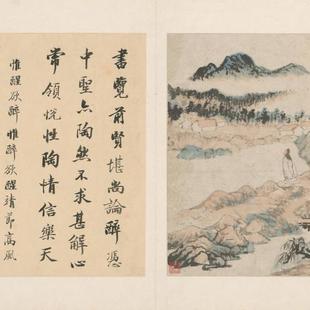 書覽前賢堪尚論醉憑
中聖亦陶然不求甚解心
常領悅性陶情信樂天
惟醒欲醉惟醉欲醒靖節高風